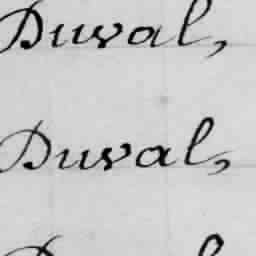 Duval,
Duval,